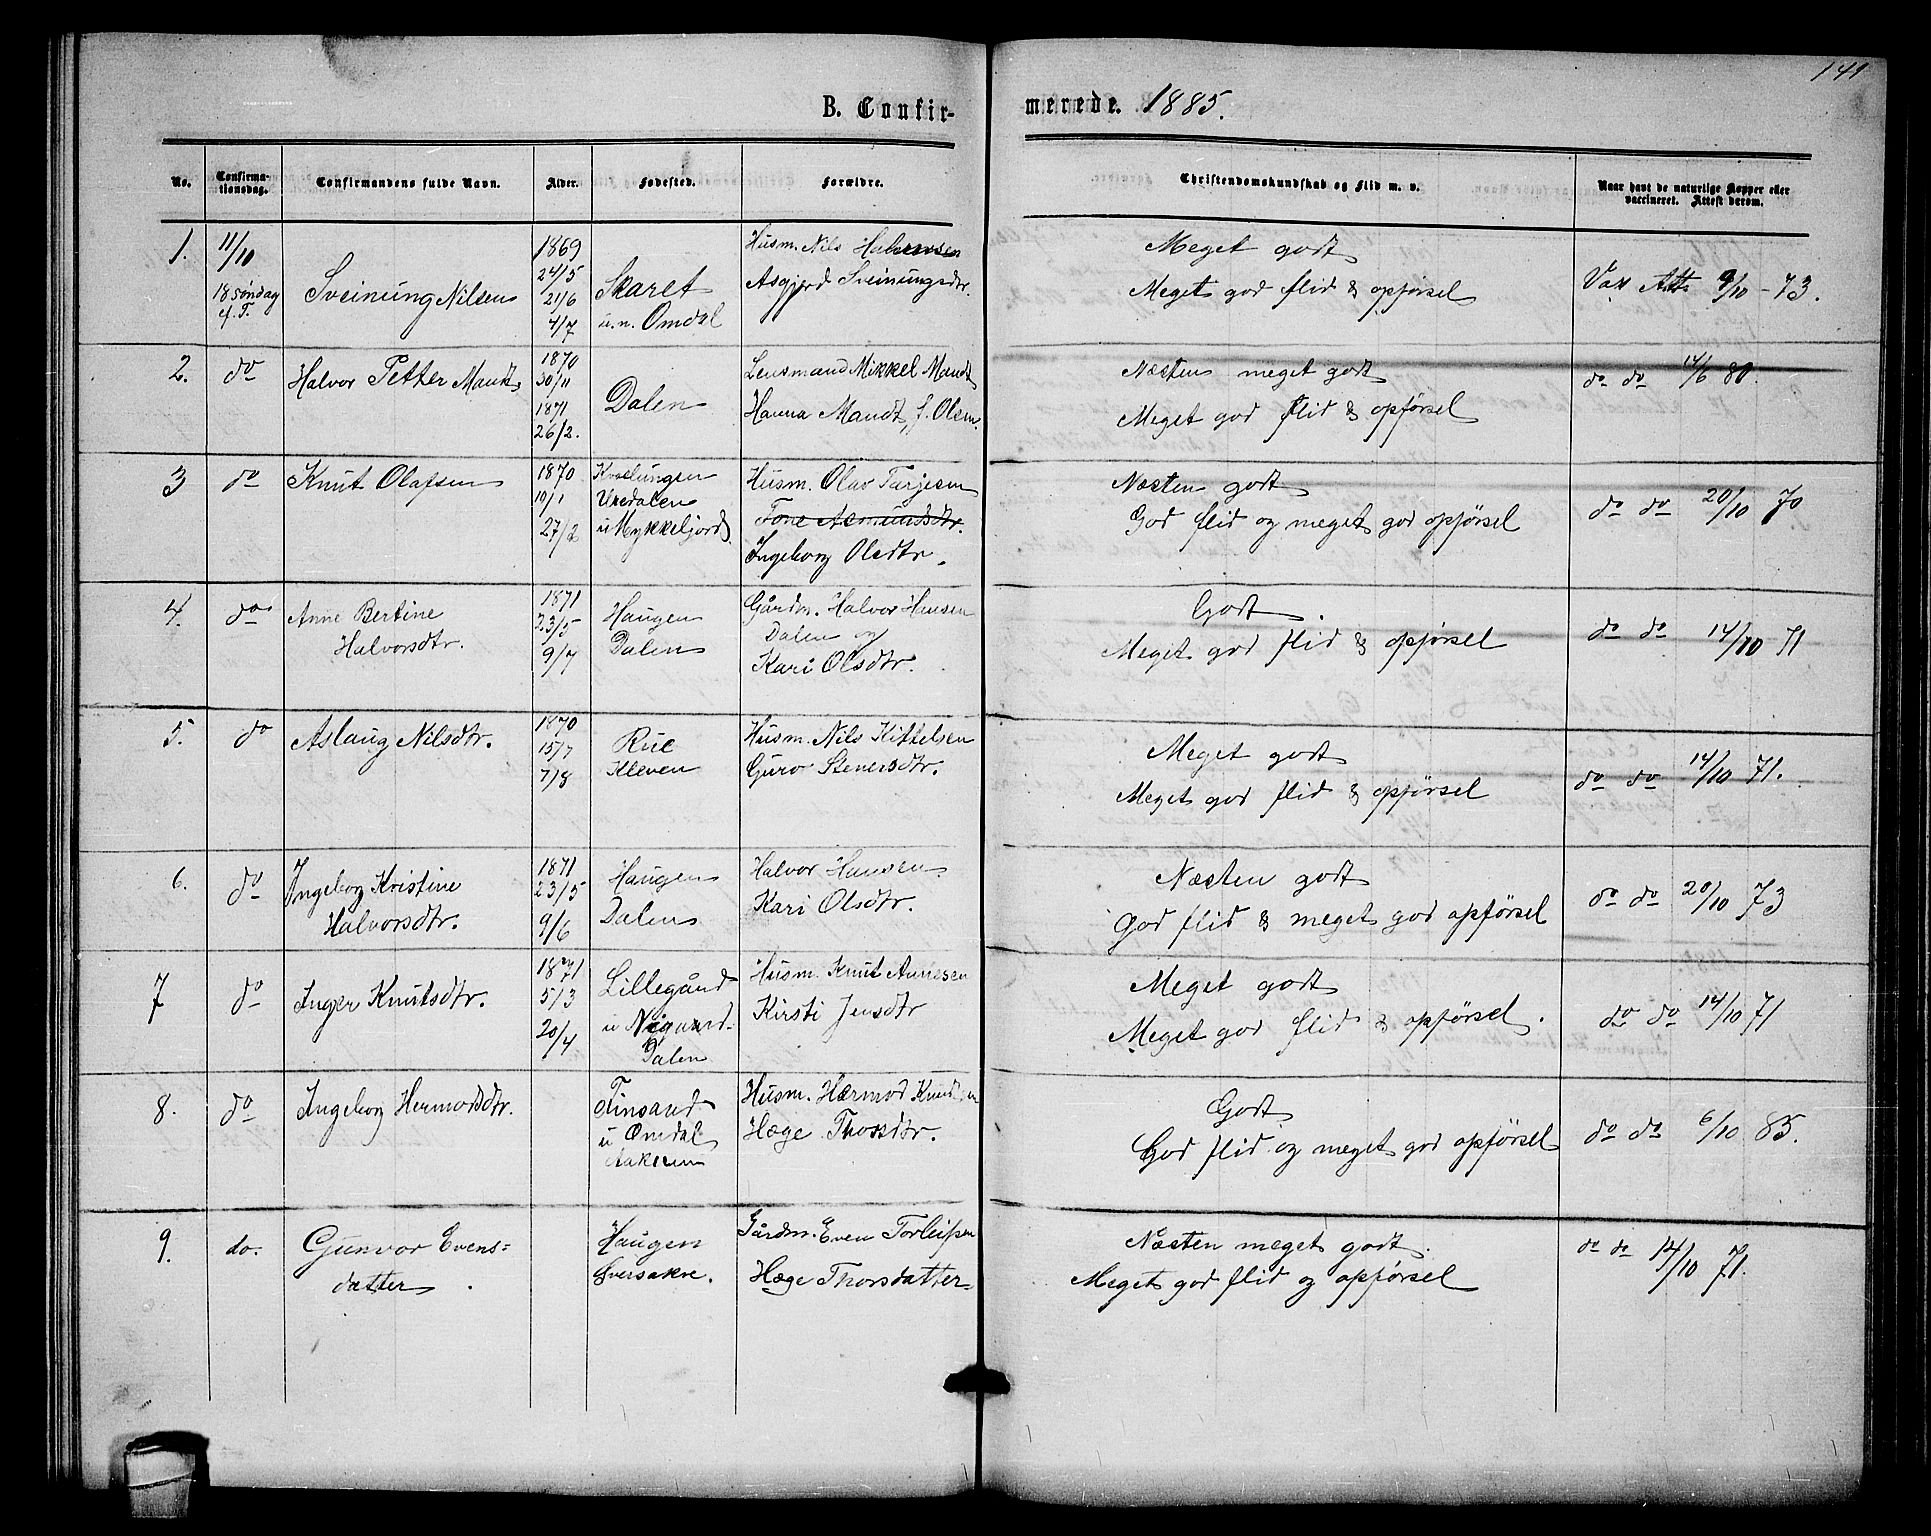 149
B. Confirmerede. 1885.
No.
Confirmationsdag.
Confirmandens fulde Navn.
Alder.
Fødested.
Forældre.
Christendomskundskab og Flid m. v.
Naar havt de naturlige Kopper eller vaccineret. Attest derom.
1. 11/10
18 søndag
e. T.
Sveinung Nilsen
1869
24/5
21/6
4/7
Skaret
u. n. Omdal
Husm. Nils Halvorsen
Asgjerd Sveinungsdtr.
Meget godt
Meget god flid & opførsel
Vax Att. 9/10 - 73.
2. do
Halvor Petter Mandt
1870
30/11
1871
26/2.
Dalen
Lensmand Mikkel Mandt
Hanna Mandt, f. Olsen.
Næsten meget godt
Meget god flid & opførsel
do do 14/6 80.
3 do
Knut Olafsen
1870
10/1
27/2
Uredalen
u Mykkeljord
Husm. Olav Tarjesen
Tone Asmundsdtr.
Ingeborg Olsdtr.
Næsten godt
God flid og meget god opførsel
do do 20/10 70
4. do
Anne Bertine
Halvorsdtr.
1871
23/5
9/7
Haugen
Dalen
Gårdm. Halvor Hansen
Dalen og
Kari Olsdtr.
Godt.
Meget god flid & opførsel
do do 14/10 71
5. do
Aslaug Nilsdtr.
1870
15/7
7/8
Rue
Kleven
Husm. Nils Kittelsen
Guro Stenersdtr.
Meget godt
Meget god flid & opførsel
do do 14/10 71.
6. do
Ingeborg Kristine
Halvorsdtr.
1871
23/5
9/6
Haugen
Dalen
Halvor Hansen
Kari Olsdtr.
Næsten godt
God flid & meget god opførsel
do do 20/10 73
7 do
Inger Knutsdtr.
1871
5/3
20/4
Lillegård
u Nigaard
Dalen
Husm. Knut Aanesen
Kirsti Jensdtr
Meget godt
Meget god flid & opførsel.
do do 14/10 71
8. do
Ingeborg Hermodsdtr.
Finsand
u Omdal
Husm. Hærmod Knudsen
Hæge Thorsdtr.
Godt
God flid og meget god opførsel
do do 6/10 85.
9. do.
Gunvor Evens-
datter.
Haugen
Øversakre.
Gårdm. Even Torleifsen
Hæge Thorsdatter
Næsten meget godt.
Meget god flid og opførsel
do do 14/10 71.